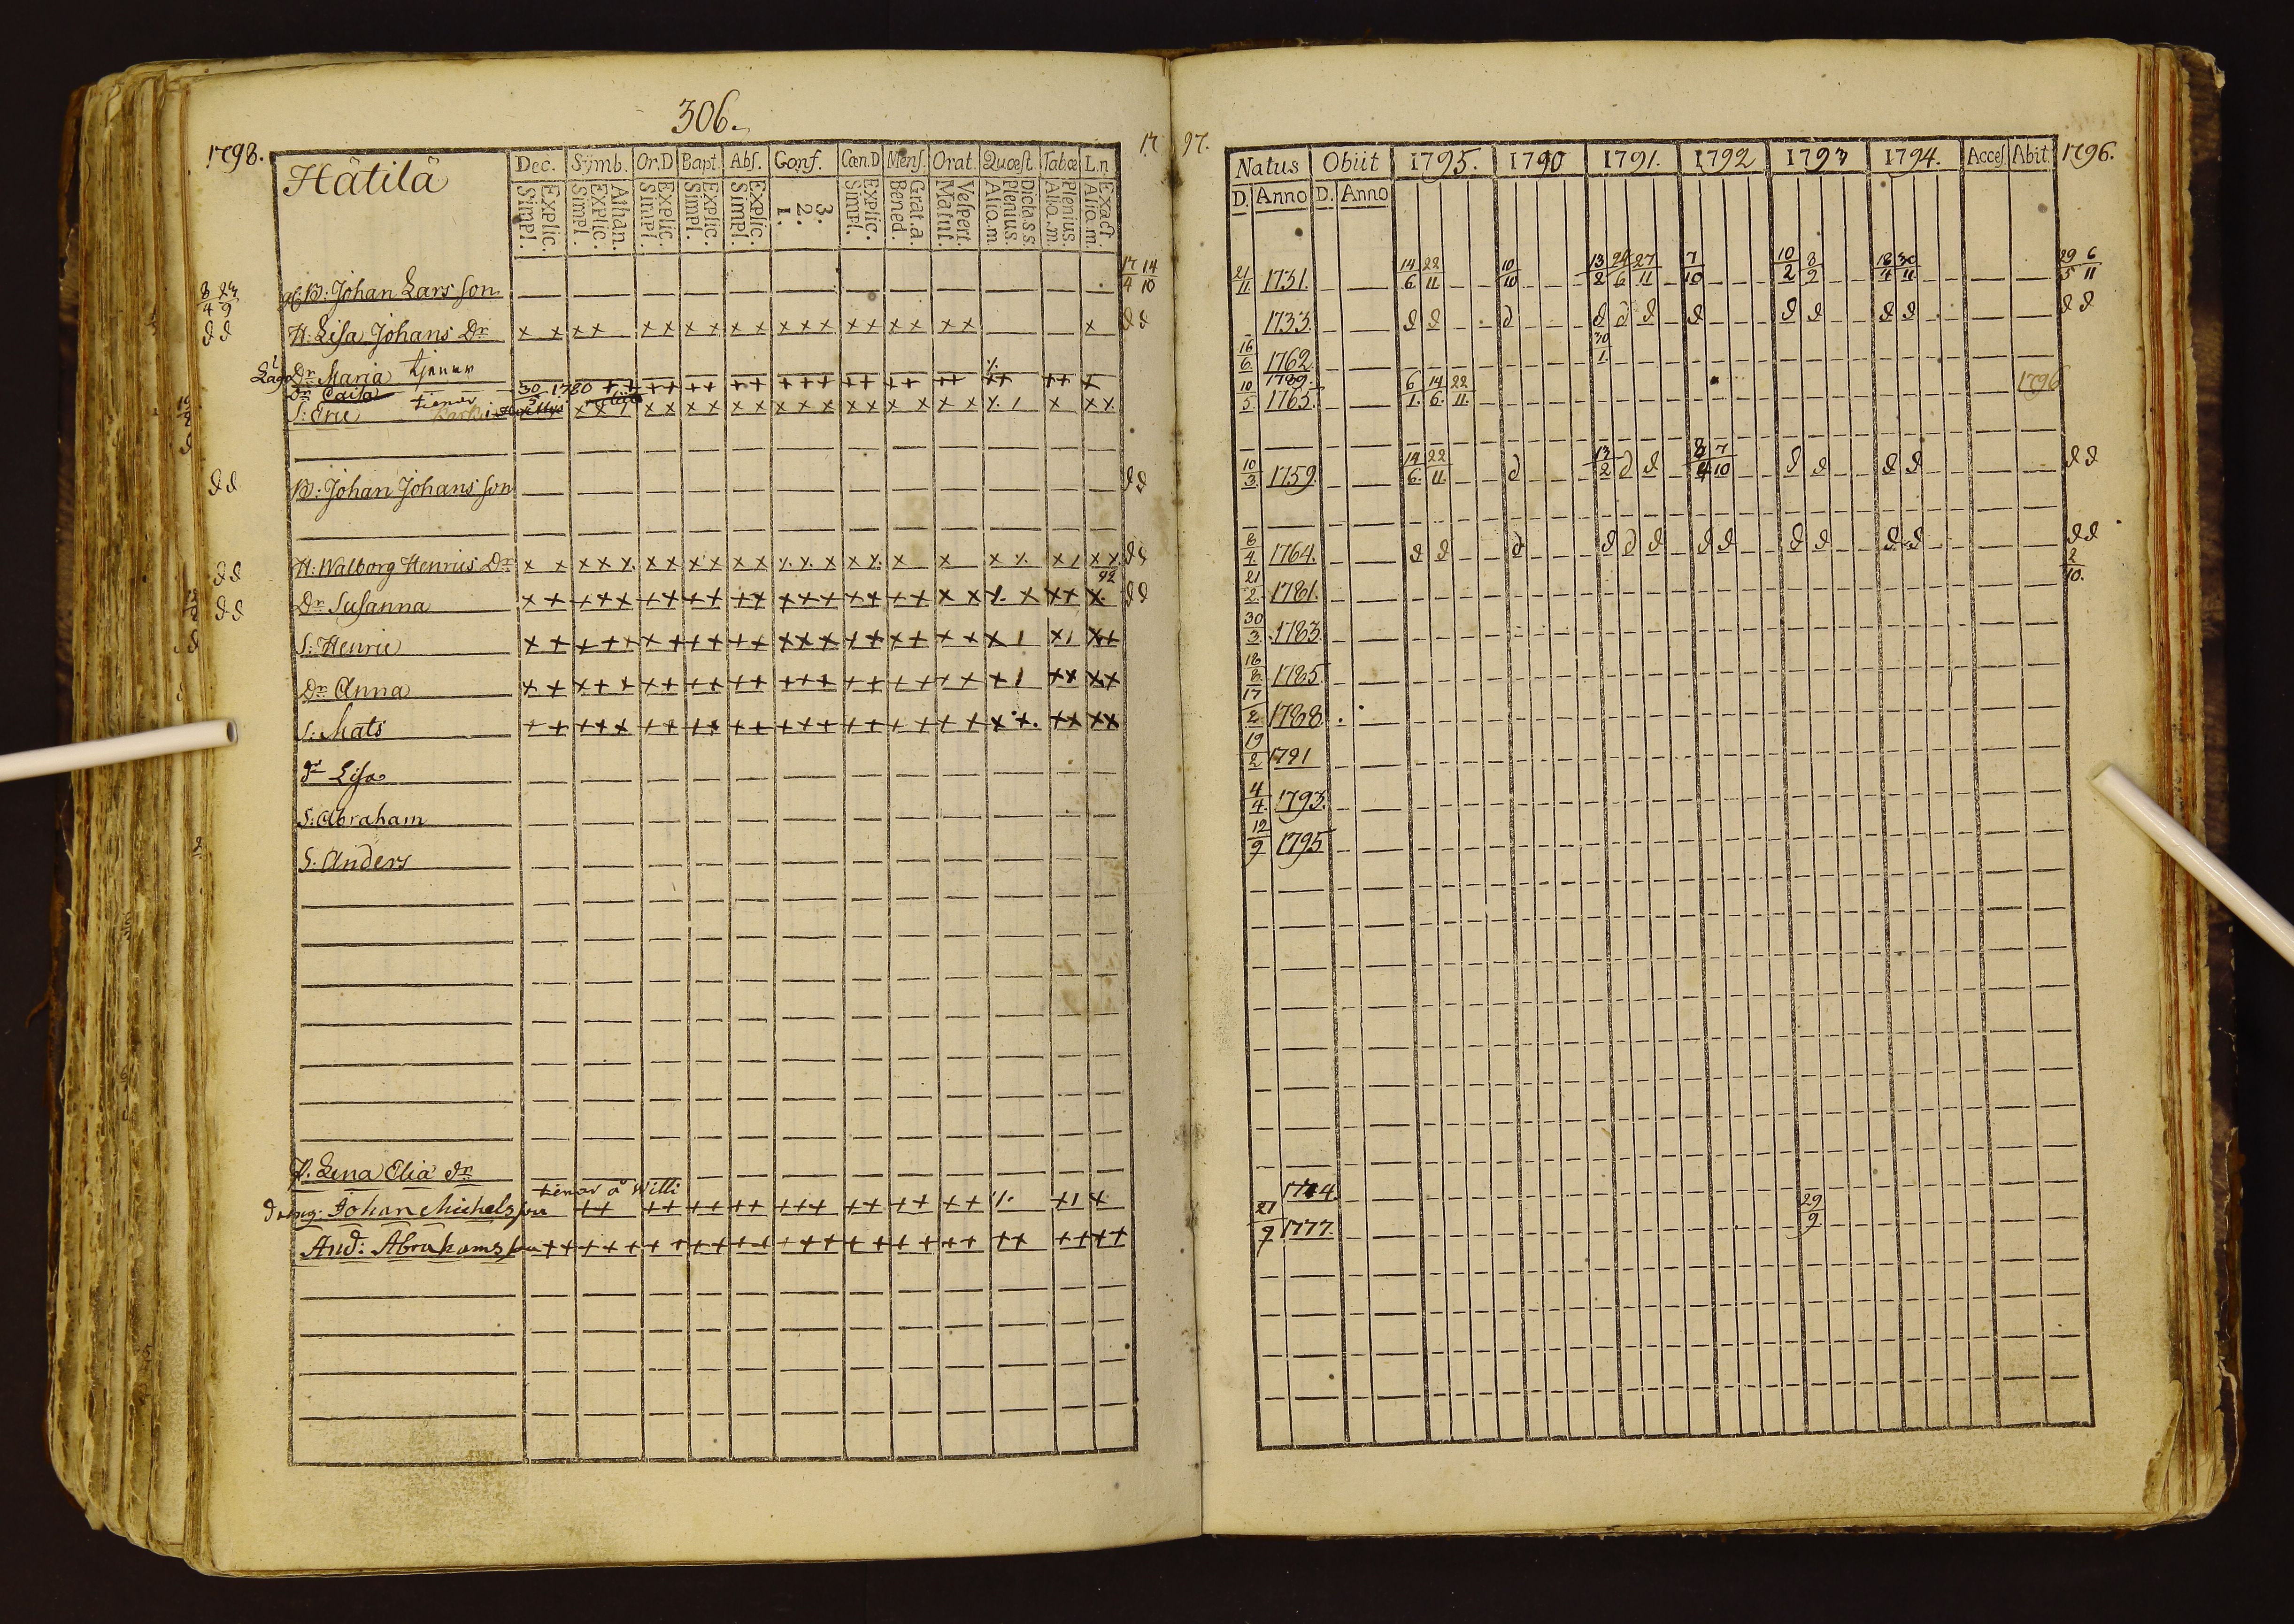 306.
1798.
Hätilä
Dec. Sÿmb. Or.D Bapt. Abſ. Conf. Cœn.D Menſ. Orat. Quœſt. Tabœ L.n
Explic. Simpl. Athan. Explic. Simpl. Explic. Simpl. Explic. Simpl. Explic. Simpl. 3. 2. 1. Explic. Simpl. Grat.a. Bened. Veſpert. Matut. Dicta.s.s. Plenius. Aliq.m. Plenius. Aliq.m. Exact. Aliq.m.
17 97.
Natus Obiit 1795. 1790 1791. 1792 1793 1794. Acceſ. Abit. 1796.
D. Anno D. Anno
8/4 23/9 B: Johan Larsſon 17/4 14/10 21/11 1731. 14/6 22/11 10/10 13/2 24/6 27/11 7/10 10/2 8/9 18/4 30/11 29/5 6/11
d d H: Liſa Johans Dr x x x x x x x x x x x x x x x x x x x x d d 1733. d d d d d d d d d d d d d
Dr Maria tjenar 16/6 1762. 30/1
Dr Caisa tienar 30 1780 1789.
S: Eric 10/5 1765. 6/1 14/6 22/11 1796
d d B: Johan Johansſon d d 10/3 1759. 14/6 22/11 d 13/2 d d 7/10 d d d d d d
d d H: Walborg Henrics Dr d d 8/4 1764. d d d d d d d d d d d d d d
d d Dr Suſanna 92 d d 21/2 1781. 2/10.
S: Henric 30/3 1783.
Dr Anna 18/8 1785.
S: Mats 17/2 1788.
dr Liſa 19/2 1791
S: Abraham 4/4 1793.
S: Anders 12/9 1795
P. Lena Elia dr
tienar å Willi
dreng. Johan Michelsſon 1774.
And: Abrahamsſon 27/9 1777. 29/9